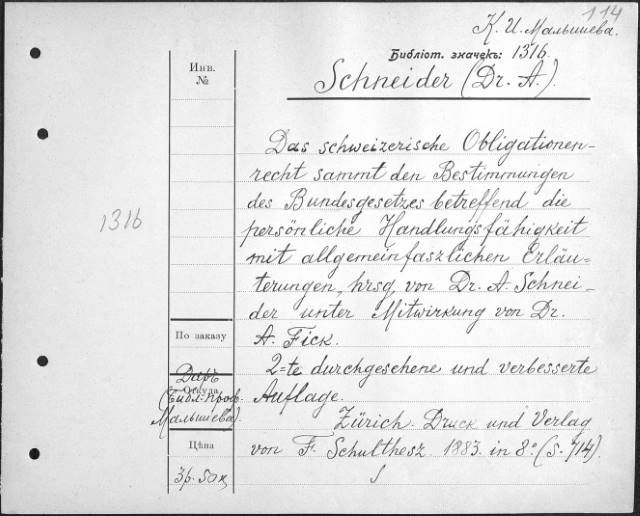 114
К. И. Малышева.
Библіот. значекъ: 1316.
Schneider (Dr. A.).
Инв.
№
Das schweizerische Obligationen-
recht sammt den Bestimmungen
des Bundesgesetzes betreffend die
persönliche Handlungsfähigkeit
mit allgemeinfaszlichen Erläu=
terungen, hrsg. von Dr. A. Schnei-
der unter Mitwirkung von Dr.
A. Fick.
2=te durchgesehene und verbesserte
Auflage.
Zürich. Druck und Verlag
von F. Schulthesz. 1883. in 8.º (S. 714).
1316
По заказу
Даръ
Откуда
(Библ. проф.
Малышева).
Цѣна
3р. 50к